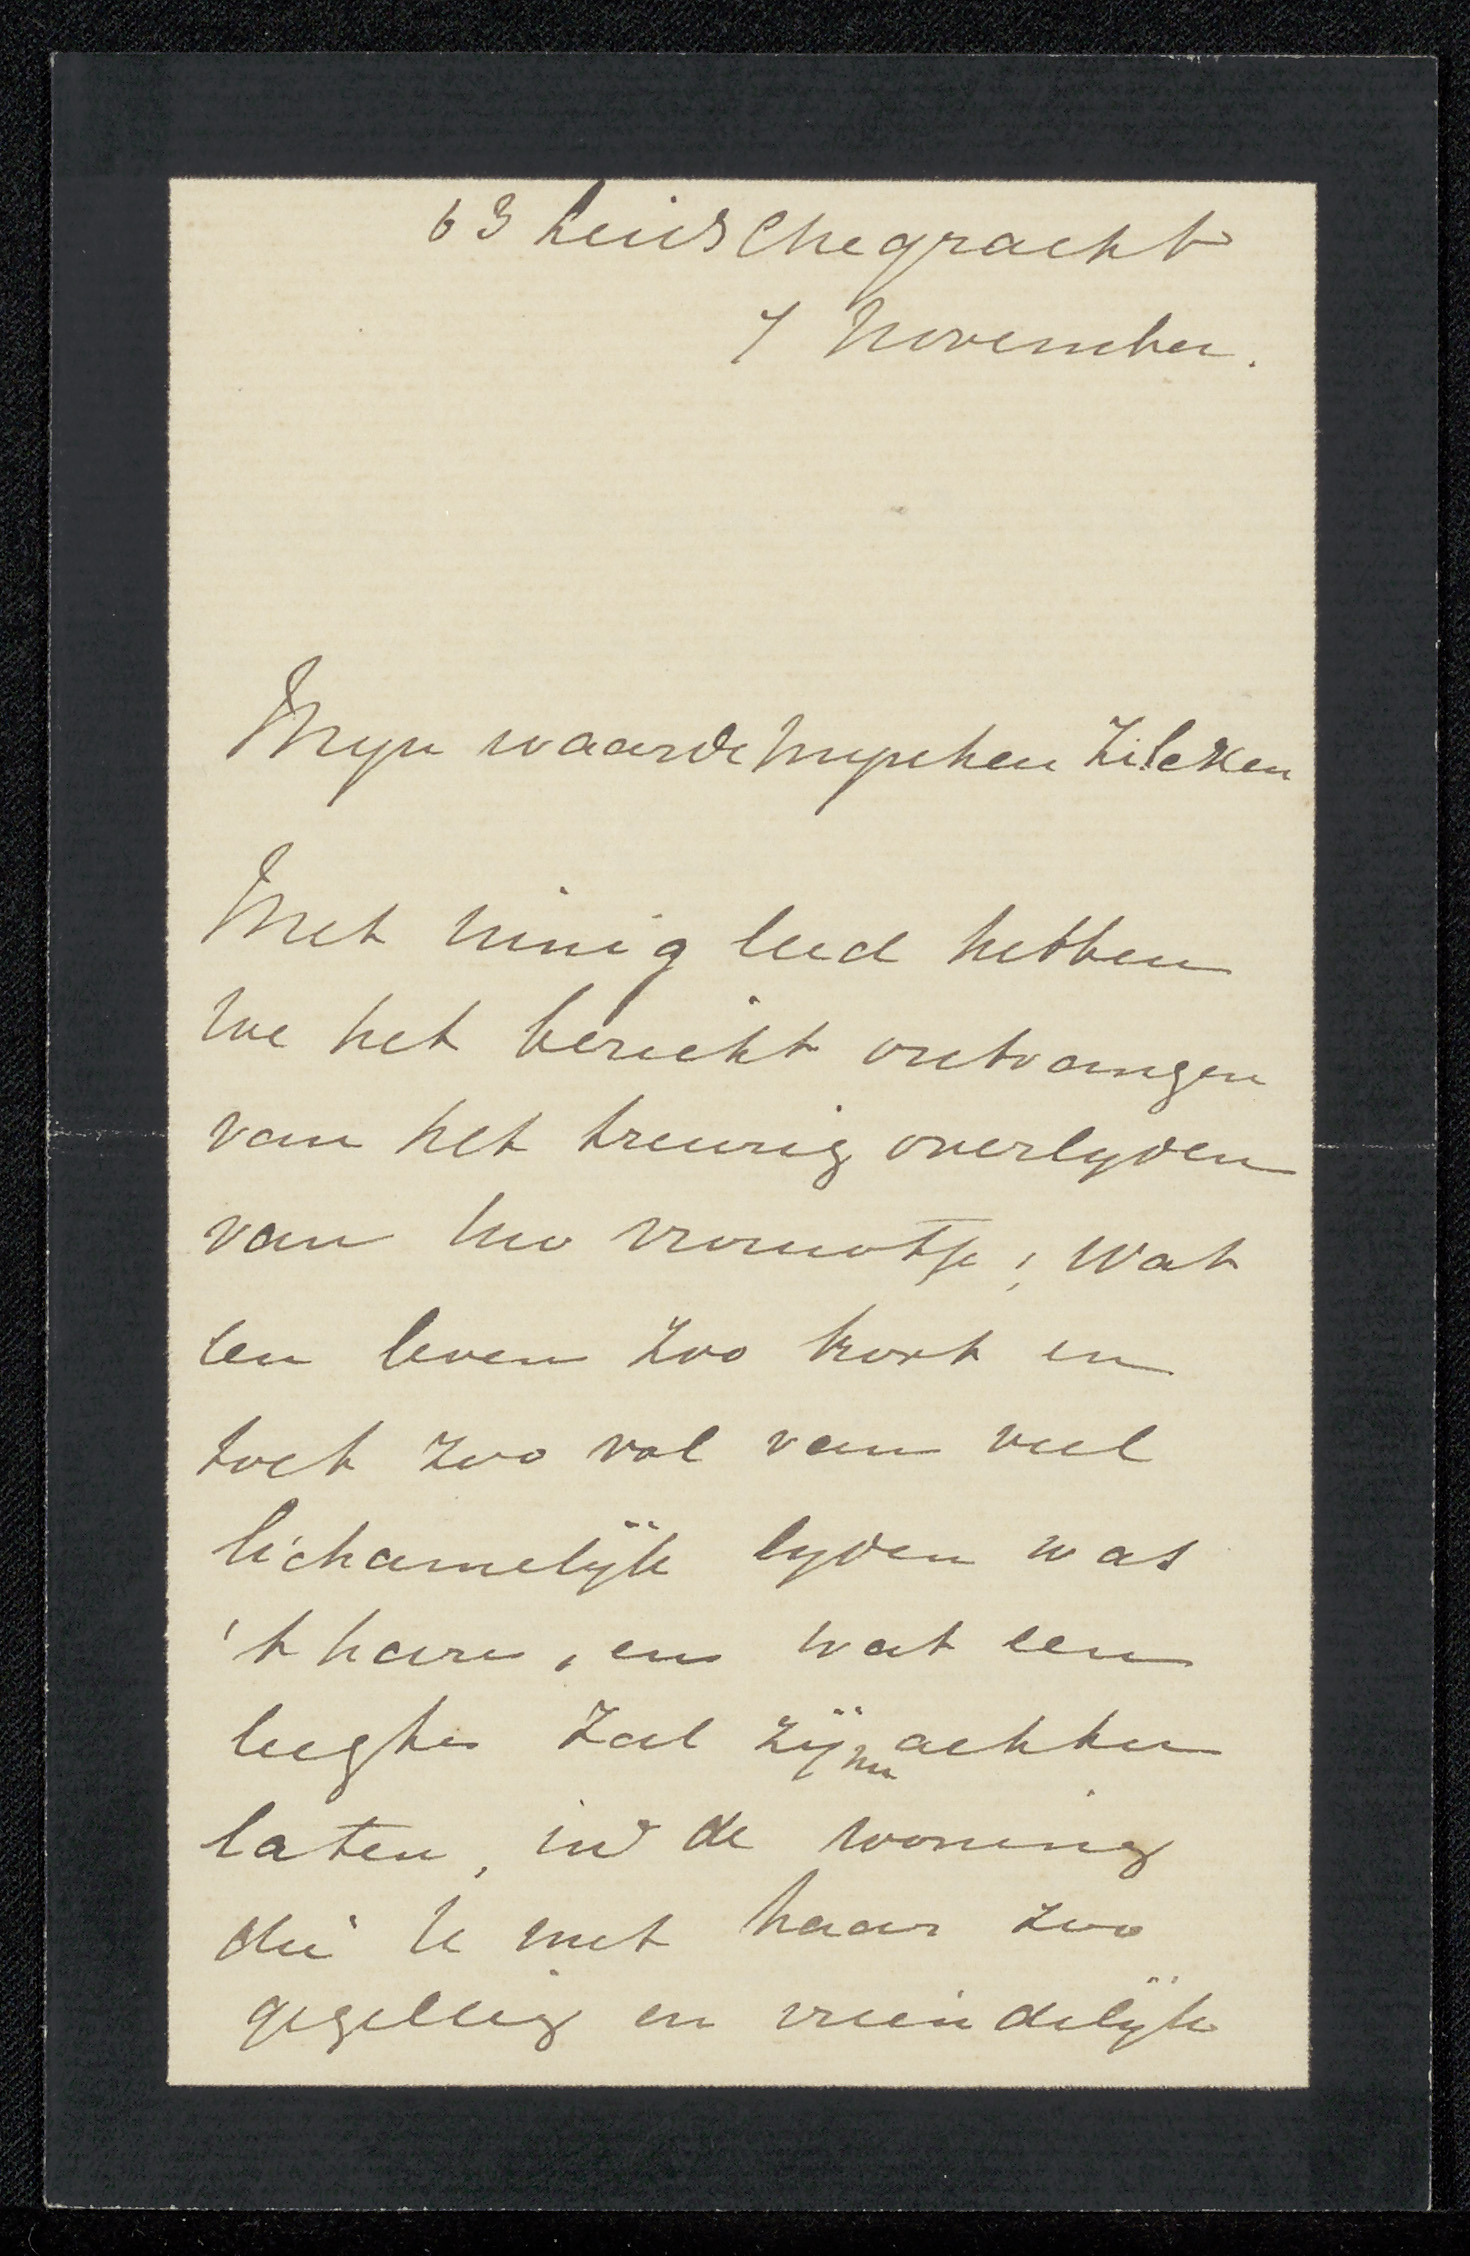 63 Leidschegracht
7 November.
Myn waarde Mynheer Zilcken
Met innig leed hebben
we het bericht ontvangen
van het treurig overlyden
van Uw vrouwtje; wat
een leven zoo kort en
toch zoo vol van veel
lichamelijk lyden was
't hare, en wat een
leegte zal zij nu achter
laten, in de woning
die U met haar zoo
gezellig en vriendelijk